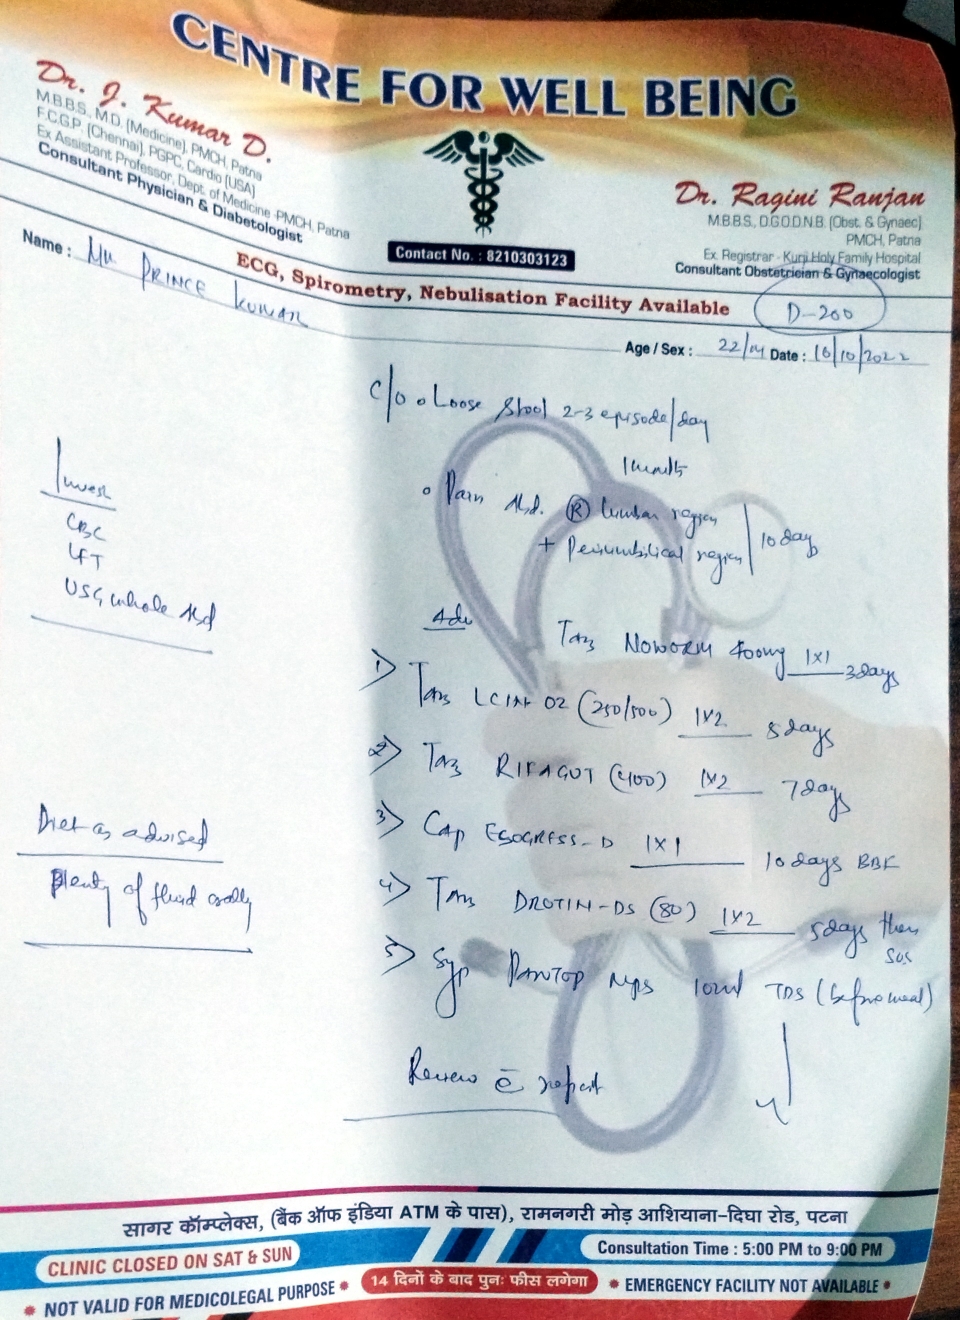 CENTRE FOR WELL BEING
Dr. J. Kumar D.
M.B.B.S., M.D. (Medicine), PMCH, Patna
F.C.G.P. (Chennai), PGPC, Cardio (USA)
Ex Assistant Professor, Dept. of Medicine -PMCH, Patna
Consultant Physician & Diabetologist
Dr. Ragini Ranjan
M.B.B.S., D.G.O.D.N.B. (Obst. & Gynaec)
PMCH, Patna
Ex. Registrar - Kurji Holy Family Hospital
Consultant Obstetrician & Gynaecologist
Contact No. : 8210303123
ECG, Spirometry, Nebulisation Facility Available
D-200
Name : Mr PRINCE KUMAR
Age / Sex : 22/M Date : 10/10/2022
C/O Loose Stool 2-3 episode/day
1 month
Pain Abd. R lumbar region
+ Periumbilical region
10 day
Invest
CBC
LFT
USG whole Abd
Adv
Tab NOWORM 400mg 1x1 3days
1) Tab LCIN OZ (250/500) 1x2 5 days
2) Tab RIFAGUT (400) 1x2 7days
3) Cap ESOGRESS-D 1x1 10 days BBF
4) Tab DROTIN-DS (80) 1x2 5days then SOS
5) Syp PANTOP MPS 10ml TDS (before meal)
Diet as advised
Plenty of fluid orally
Review c̄ report
सागर कॉम्प्लेक्स, (बैंक ऑफ इंडिया ATM के पास), रामनगरी मोड़ आशियाना-दिघा रोड, पटना
CLINIC CLOSED ON SAT & SUN
Consultation Time : 5:00 PM to 9:00 PM
NOT VALID FOR MEDICOLEGAL PURPOSE
14 दिनों के बाद पुनः फीस लगेगा
EMERGENCY FACILITY NOT AVAILABLE